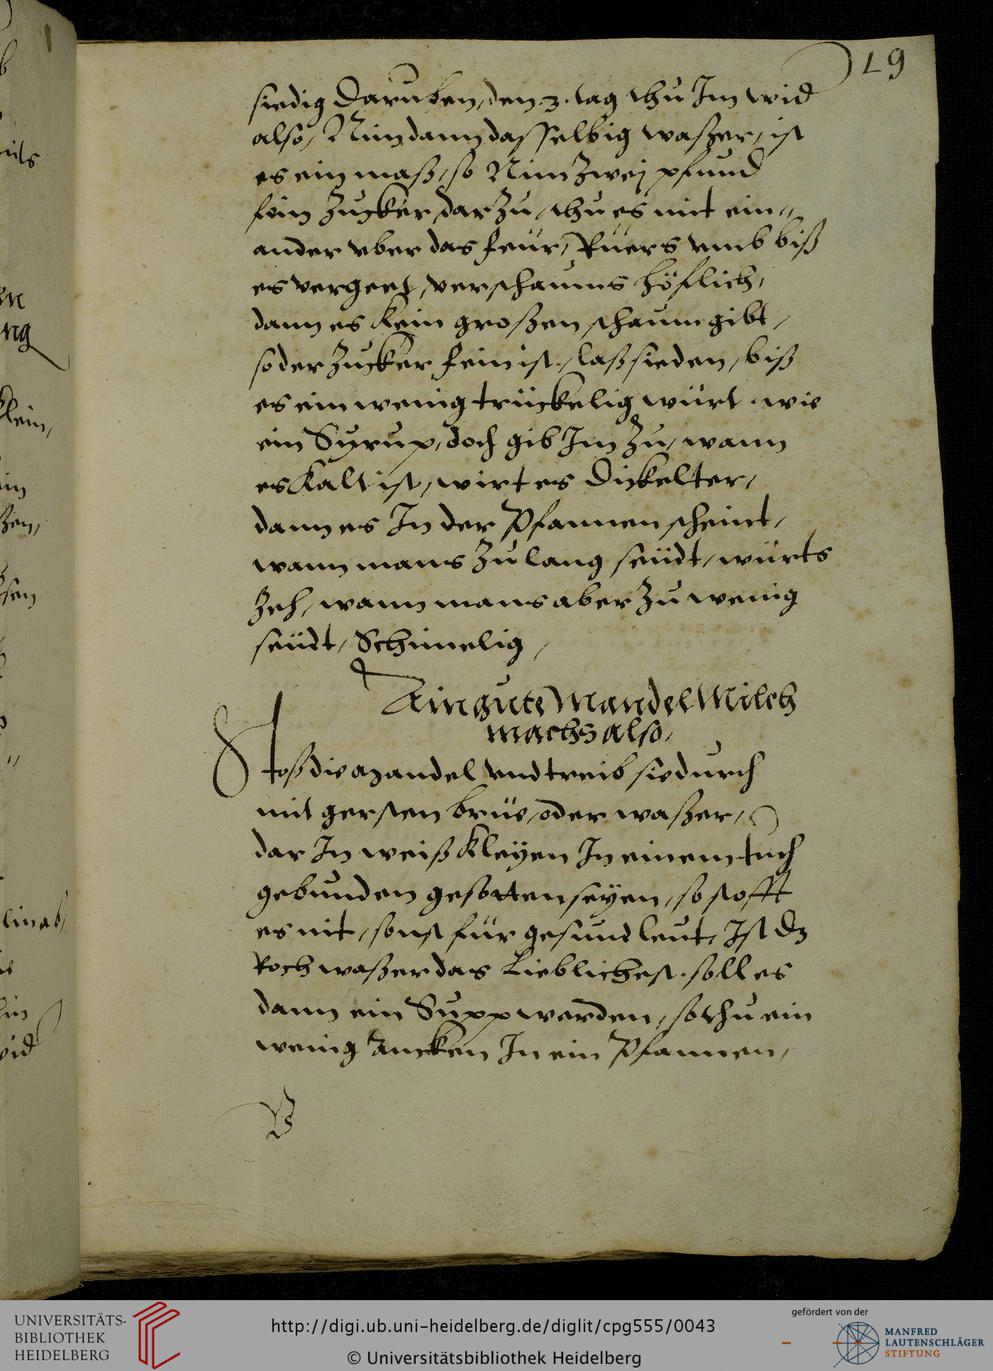 19
siedig daruben, den .3. tag thu Im wid
also, Nim dann dasselbig waßer, ist
es ein maß, so Nim zwej pfund
fein Zucker, dar Zu, thu es mit ein„
ander vber das feür, Rüers vmb biß
es vergeet, verschaums höflich,
dann es kein großen schaum gibt,
so der Zucker fein ist, laß sieden, biß
es ein wenig trückelig würt. wie
ein Syrup, doch gib Im Zu, wann
es kalt ist, wirt es dickelter,
dann es In der Pfannen scheint,
wann mans Zu lang seüdt, würts
Zeh, wann mans aber Zu wenig
seüdt, Schimelig,
Ain gute Mandel Milch
machs also,
Stoß die mandel vnd treib sie durch
mit gersten brüe, oder waßer,
dar In weiß Kleyen In einem tuch
gebunden gesotten seyen, so stofft
es nit, sonst für gesund leut, Ist dz
Roch waßer das Lieblichest. soll es
dann ein Supp werden, so thu ein
wenig Ancken In ein Pfannen,
B
UNIVERSITÄTS-
BIBLIOTHEK
HEIDELBERG
http://digi.ub.uni-heidelberg.de/diglit/cpg555/0043
© Universitätsbibliothek Heidelberg
gefördert von der
MANFRED
LAUTENSCHLÄGER
STIFTUNG